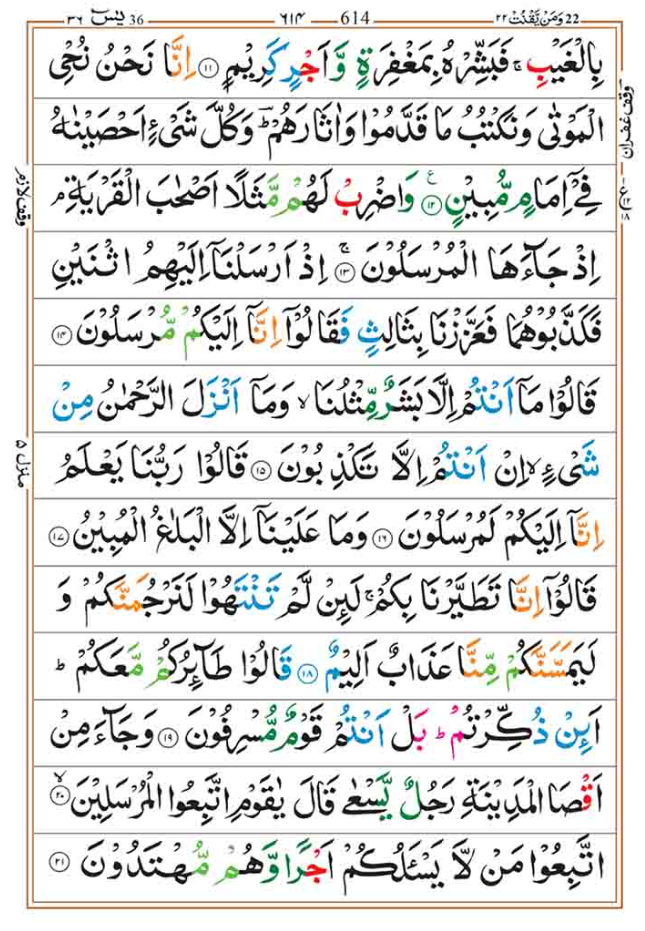 22 وَمَنْ يَّقْنُتْ ٢٢ — 614 — ٦١٤ — 36 يٰسٓ ٣٦
بِالْغَيْبِ ۚ فَبَشِّرْهُ بِمَغْفِرَةٍ وَّاَجْرٍ كَرِيْمٍ ﴿۱۱﴾ اِنَّا نَحْنُ نُحْیِ
الْمَوْتٰى وَنَكْتُبُ مَا قَدَّمُوْا وَاٰثَارَهُمْ ؕ وَكُلَّ شَیْءٍ اَحْصَيْنٰهُ
وقف غفران
فِیْۤ اِمَامٍ مُّبِيْنٍ ﴿۱۲﴾ وَاضْرِبْ لَهُمْ مَّثَلًا اَصْحٰبَ الْقَرْيَةِ ۘ
وقف لازم
اِذْ جَآءَهَا الْمُرْسَلُوْنَ ﴿۱۳﴾ اِذْ اَرْسَلْنَاۤ اِلَيْهِمُ اثْنَيْنِ
فَكَذَّبُوْهُمَا فَعَزَّزْنَا بِثَالِثٍ فَقَالُوْۤا اِنَّاۤ اِلَيْكُمْ مُّرْسَلُوْنَ ﴿۱۴﴾
قَالُوْا مَاۤ اَنْتُمْ اِلَّا بَشَرٌ مِّثْلُنَا ۙ وَمَاۤ اَنْزَلَ الرَّحْمٰنُ مِنْ
شَیْءٍ ۙ اِنْ اَنْتُمْ اِلَّا تَكْذِبُوْنَ ﴿۱۵﴾ قَالُوْا رَبُّنَا يَعْلَمُ
منزل ۵
اِنَّاۤ اِلَيْكُمْ لَمُرْسَلُوْنَ ﴿۱۶﴾ وَمَا عَلَيْنَاۤ اِلَّا الْبَلٰغُ الْمُبِيْنُ ﴿۱۷﴾
قَالُوْۤا اِنَّا تَطَيَّرْنَا بِكُمْ ۚ لَئِنْ لَّمْ تَنْتَهُوْا لَنَرْجُمَنَّكُمْ وَ
لَيَمَسَّنَّكُمْ مِّنَّا عَذَابٌ اَلِيْمٌ ﴿۱۸﴾ قَالُوْا طَآئِرُكُمْ مَّعَكُمْ ؕ
اَئِنْ ذُكِّرْتُمْ ؕ بَلْ اَنْتُمْ قَوْمٌ مُّسْرِفُوْنَ ﴿۱۹﴾ وَجَآءَ مِنْ
اَقْصَا الْمَدِيْنَةِ رَجُلٌ يَّسْعٰى قَالَ يٰقَوْمِ اتَّبِعُوا الْمُرْسَلِيْنَ ﴿۲۰﴾ ۙ
اتَّبِعُوْا مَنْ لَّا يَسْـَٔلُكُمْ اَجْرًا وَّهُمْ مُّهْتَدُوْنَ ﴿۲۱﴾